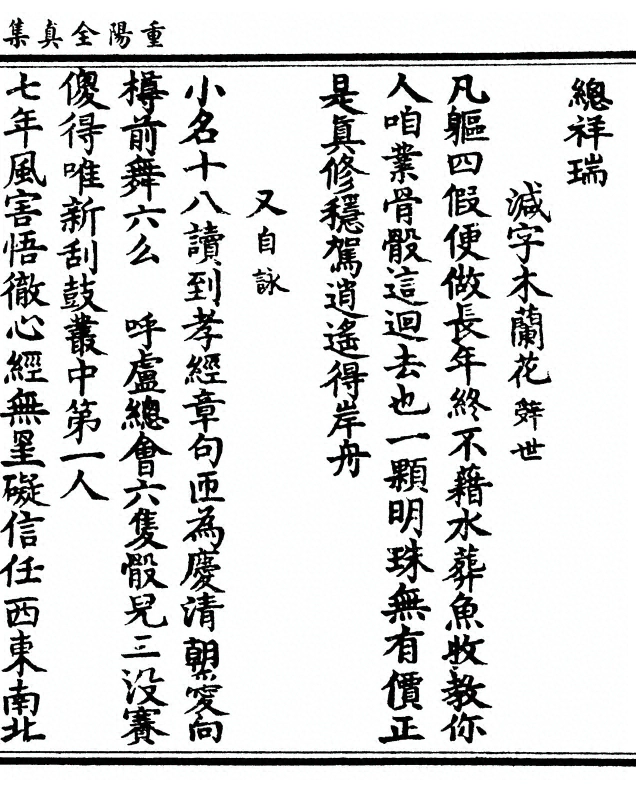 重陽全真集
總祥瑞
減字木蘭花 辤世
凡軀四假便做長年終不藉水葬魚收教你
人咱業骨骰這迴去也一顆明珠無有價正
是真修穩駕逍遙得岸舟
又自詠
小名十八讀到孝經章句匝為慶清朝愛向
樽前舞六么 呼盧總會六隻骰兒三沒賽
傻得唯新刮鼓叢中第一人
七年風害悟徹心經無罣礙信任西東南北